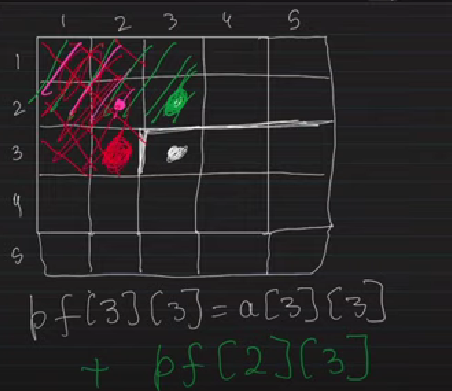 1 2 3 4 5
1
2
3
4
5
pf[3][3]=a[3][3]
+ pf[2][3]